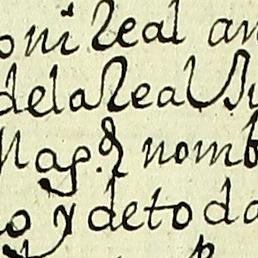 oni Real an
dela Real Ju
Mag.d nomb
o y detoda